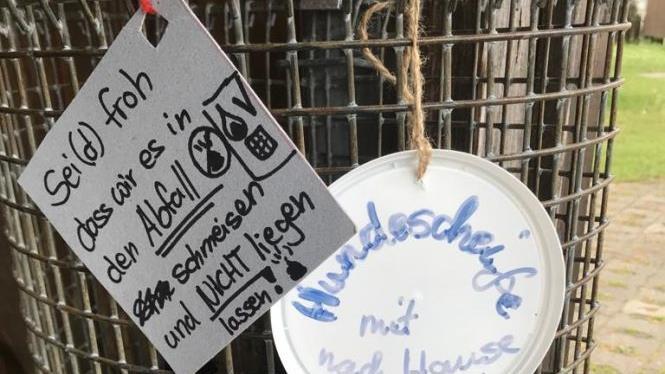 Sei(d) froh
dass wir es in
den Abfall
schmeisen
und NICHT liegen
lassen!
Hundescheiße
mit
nach Hause